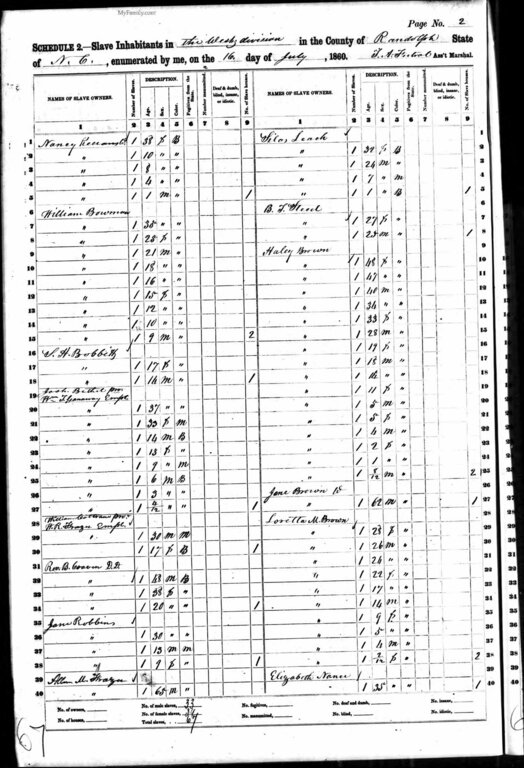 MyFamily.com
Page No. 2
SCHEDULE 2.—Slave Inhabitants in the West division in the County of Randolph State
of N. C., enumerated by me, on the 16 day of July, 1860. Ass't Marshal.
NAMES OF SLAVE OWNERS.
Number of Slaves.
DESCRIPTION.
Age.
Sex.
Color.
Fugitives from the State.
Number manumitted.
Deaf & dumb, blind, insane, or idiotic.
No. of Slave houses.
NAMES OF SLAVE OWNERS.
Number of Slaves.
DESCRIPTION.
Age.
Sex.
Color.
Fugitives from the State.
Number manumitted.
Deaf & dumb, blind, insane, or idiotic.
No. of Slave houses.
1 2 3 4 5 6 7 8 9 1 2 3 4 5 6 7 8 9
1 Nancy 1 38 f B Silas Leach 1
2 " 1 10 " " " 1 32 f B 2
3 " 1 8 " " " 1 24 m " 3
4 " 1 4 " " " 1 7 " m 4
5 " 1 1 m " 1 " 1 1 " B 1 5
6 William Bowman 6
7 " 1 35 " " " 1 27 f " 7
8 " 1 25 f " " 1 25 m " 1 8
9 " 1 21 m " Haley Brown 9
10 " 1 18 " " " 1 48 f " 10
11 " 1 16 " " " 1 47 " " 11
12 " 1 15 f " " 1 40 m " 12
13 " 1 12 " " " 1 34 " " 13
14 " 1 10 " " " 1 33 f " 14
15 " 1 9 m " 2 " 1 28 m " 15
16 " 1 19 f " 16
17 " 1 17 f " " 1 18 m " 17
18 " 1 14 m " 1 " 1 " " 18
19 " 1 11 f " 19
20 " 1 37 " " " 1 5 m " 20
21 " 1 33 f m " 1 5 f " 21
22 " 1 14 m B " 1 4 m " 22
23 " 1 13 f " " 1 2 f " 23
24 " 1 9 " m " 1 1 " " 24
25 " 1 6 m B " 1 m " 2 25
26 " 1 3 " " Jane Brown 26
27 " 1 " " 1 " 1 62 m " 1 27
28 Loretta M. Brown 28
29 " 1 30 m m " 1 28 f " 29
30 " 1 17 f B 1 " 1 26 m " 30
31 Rev. B. Craven D.D. " 1 24 " " 31
32 " 1 48 m B " 1 22 f " 32
33 " 1 38 f " " 1 17 " " 33
34 " 1 20 " " 1 " 1 14 m " 34
35 Jane Robbins " 1 9 f " 35
36 " 1 30 " " " 1 5 " " 36
37 " 1 13 m m " 1 4 m " 37
38 " 1 9 f " 1 " 1 f " 2 38
39 Elizabeth Nance 39
40 " 1 65 m " " 1 35 " " 1 40
No. of owners,
No. of houses,
No. of male slaves, 33
No. of female slaves, 34
Total slaves, 67
No. fugitives,
No. manumitted,
No. deaf and dumb,
No. blind,
No. insane,
No. idiotic,
67